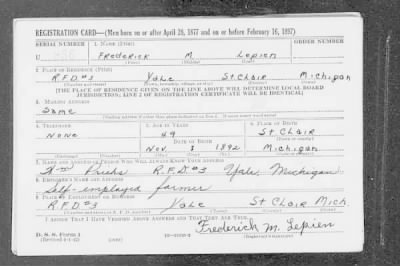 REGISTRATION CARD—(Men born on or after April 28, 1877 and on or before February 16, 1897)
SERIAL NUMBER 1. NAME (Print) ORDER NUMBER
U Frederick M. Lepien
(First) (Middle) (Last)
2. PLACE OF RESIDENCE (Print)
R.F.D #3 Yale St. Clair Michigan
(Number and street) (Town, township, village, or city) (County) (State)
[THE PLACE OF RESIDENCE GIVEN ON THE LINE ABOVE WILL DETERMINE LOCAL BOARD
JURISDICTION; LINE 2 OF REGISTRATION CERTIFICATE WILL BE IDENTICAL]
3. MAILING ADDRESS
Same
[Mailing address if other than place indicated on line 2. If same insert word same]
4. TELEPHONE 5. AGE IN YEARS 6. PLACE OF BIRTH
None 49 St Clair
DATE OF BIRTH
Nov. 1892 Michigan
7. NAME AND ADDRESS OF PERSON WHO WILL ALWAYS KNOW YOUR ADDRESS
R.F.D. #3 Yale, Michigan
8. EMPLOYER'S NAME AND ADDRESS
Self-employed farmer
9. PLACE OF EMPLOYMENT OR BUSINESS
R.F.D #3 Yale St Clair Mich.
(Number and street or R. F. D. number) (Town) (County) (State)
I AFFIRM THAT I HAVE VERIFIED ABOVE ANSWERS AND THAT THEY ARE TRUE.
Frederick M. Lepien
D. S. S. Form 1
(Revised 4-1-42) (over)